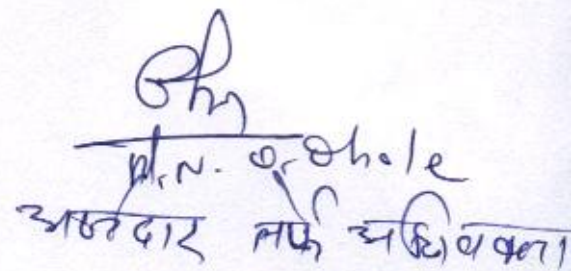 M.N. Dhole
अर्जदार तर्फे अधिवक्ता